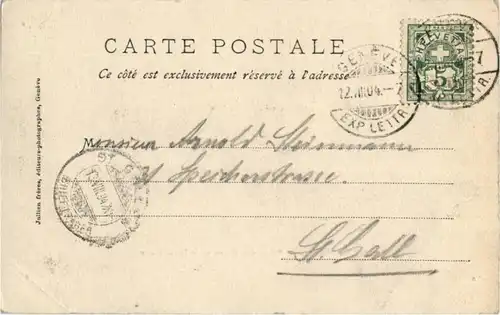 CARTE POSTALE
Ce côté est exclusivement réservé à l'adresse
HELVETIA
5
GENÈVE
12.VIII.04.-7
EXP. LETTR.
Monsieur Arnold Steinmann
31 Speicherstrasse.
St. Gall
ST. GALLEN
Jullien frères, éditeurs-photographes, Genève